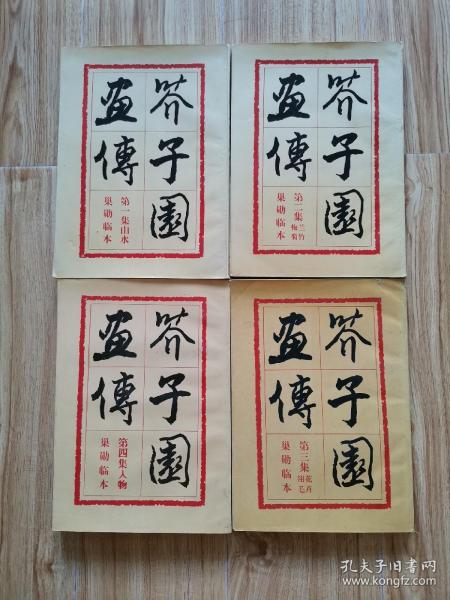 芥子園
画傳
第一集山水
巢勋临本
芥子園
画傳
第二集兰竹梅菊
巢勋临本
芥子園
画傳
第四集人物
巢勋临本
芥子園
画傳
第三集花卉翎毛
巢勋临本
孔夫子旧书网
www.kongfz.com